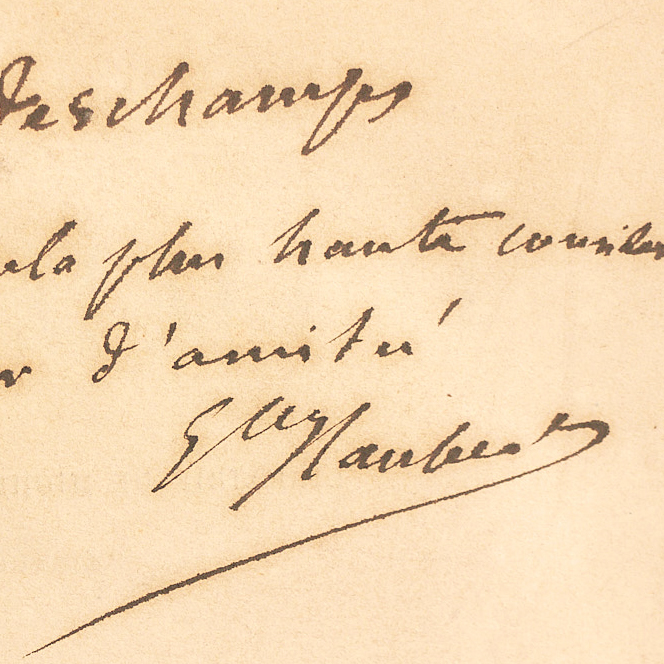 Deschamps
la plus haute consider
d'amitié
Gve Flaubert